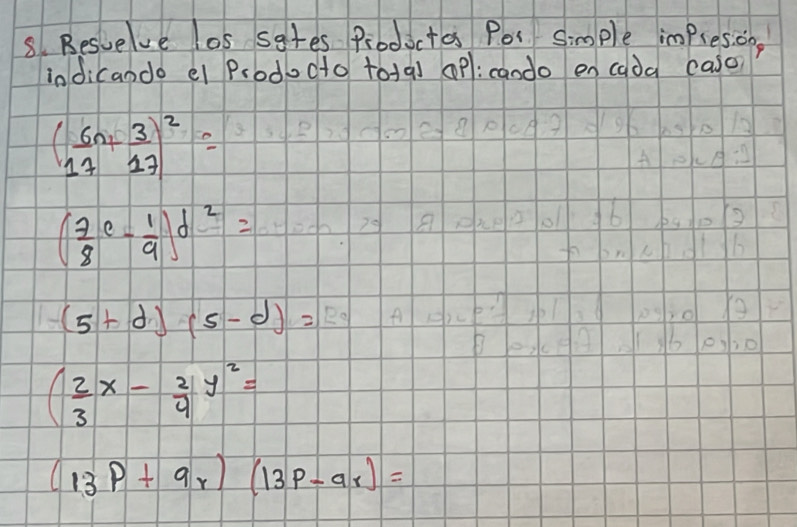 8. Resuelve los sgtes Productos Por simple impresión,
indicando el Producto total aplicando en cada caso
(6n/17 + 3/17)² =
(7/8 e - 1/9)d² =
(5 + d) (5 - d) =
(2/3 x - 2/4 y² =
(13P + 9r) (13P - 9r) =